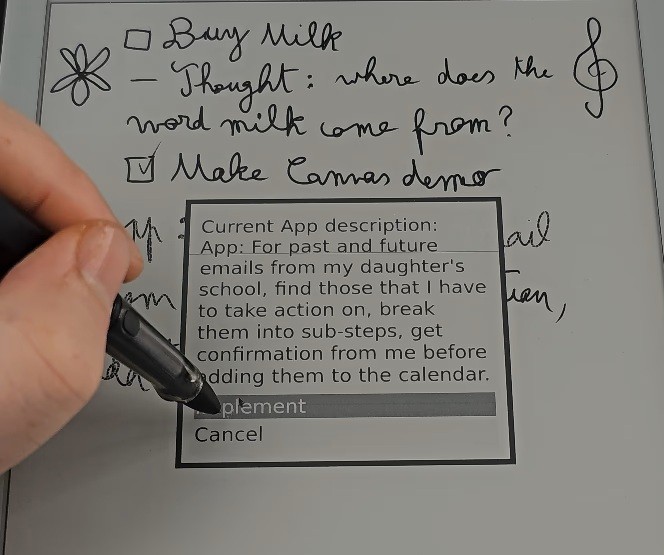 Buy Milk
— Thought: where does the
word milk come from?
Make Canvas demo
Current App description:
App: For past and future
emails from my daughter's
school, find those that I have
to take action on, break
them into sub-steps, get
confirmation from me before
adding them to the calendar.
Implement
Cancel